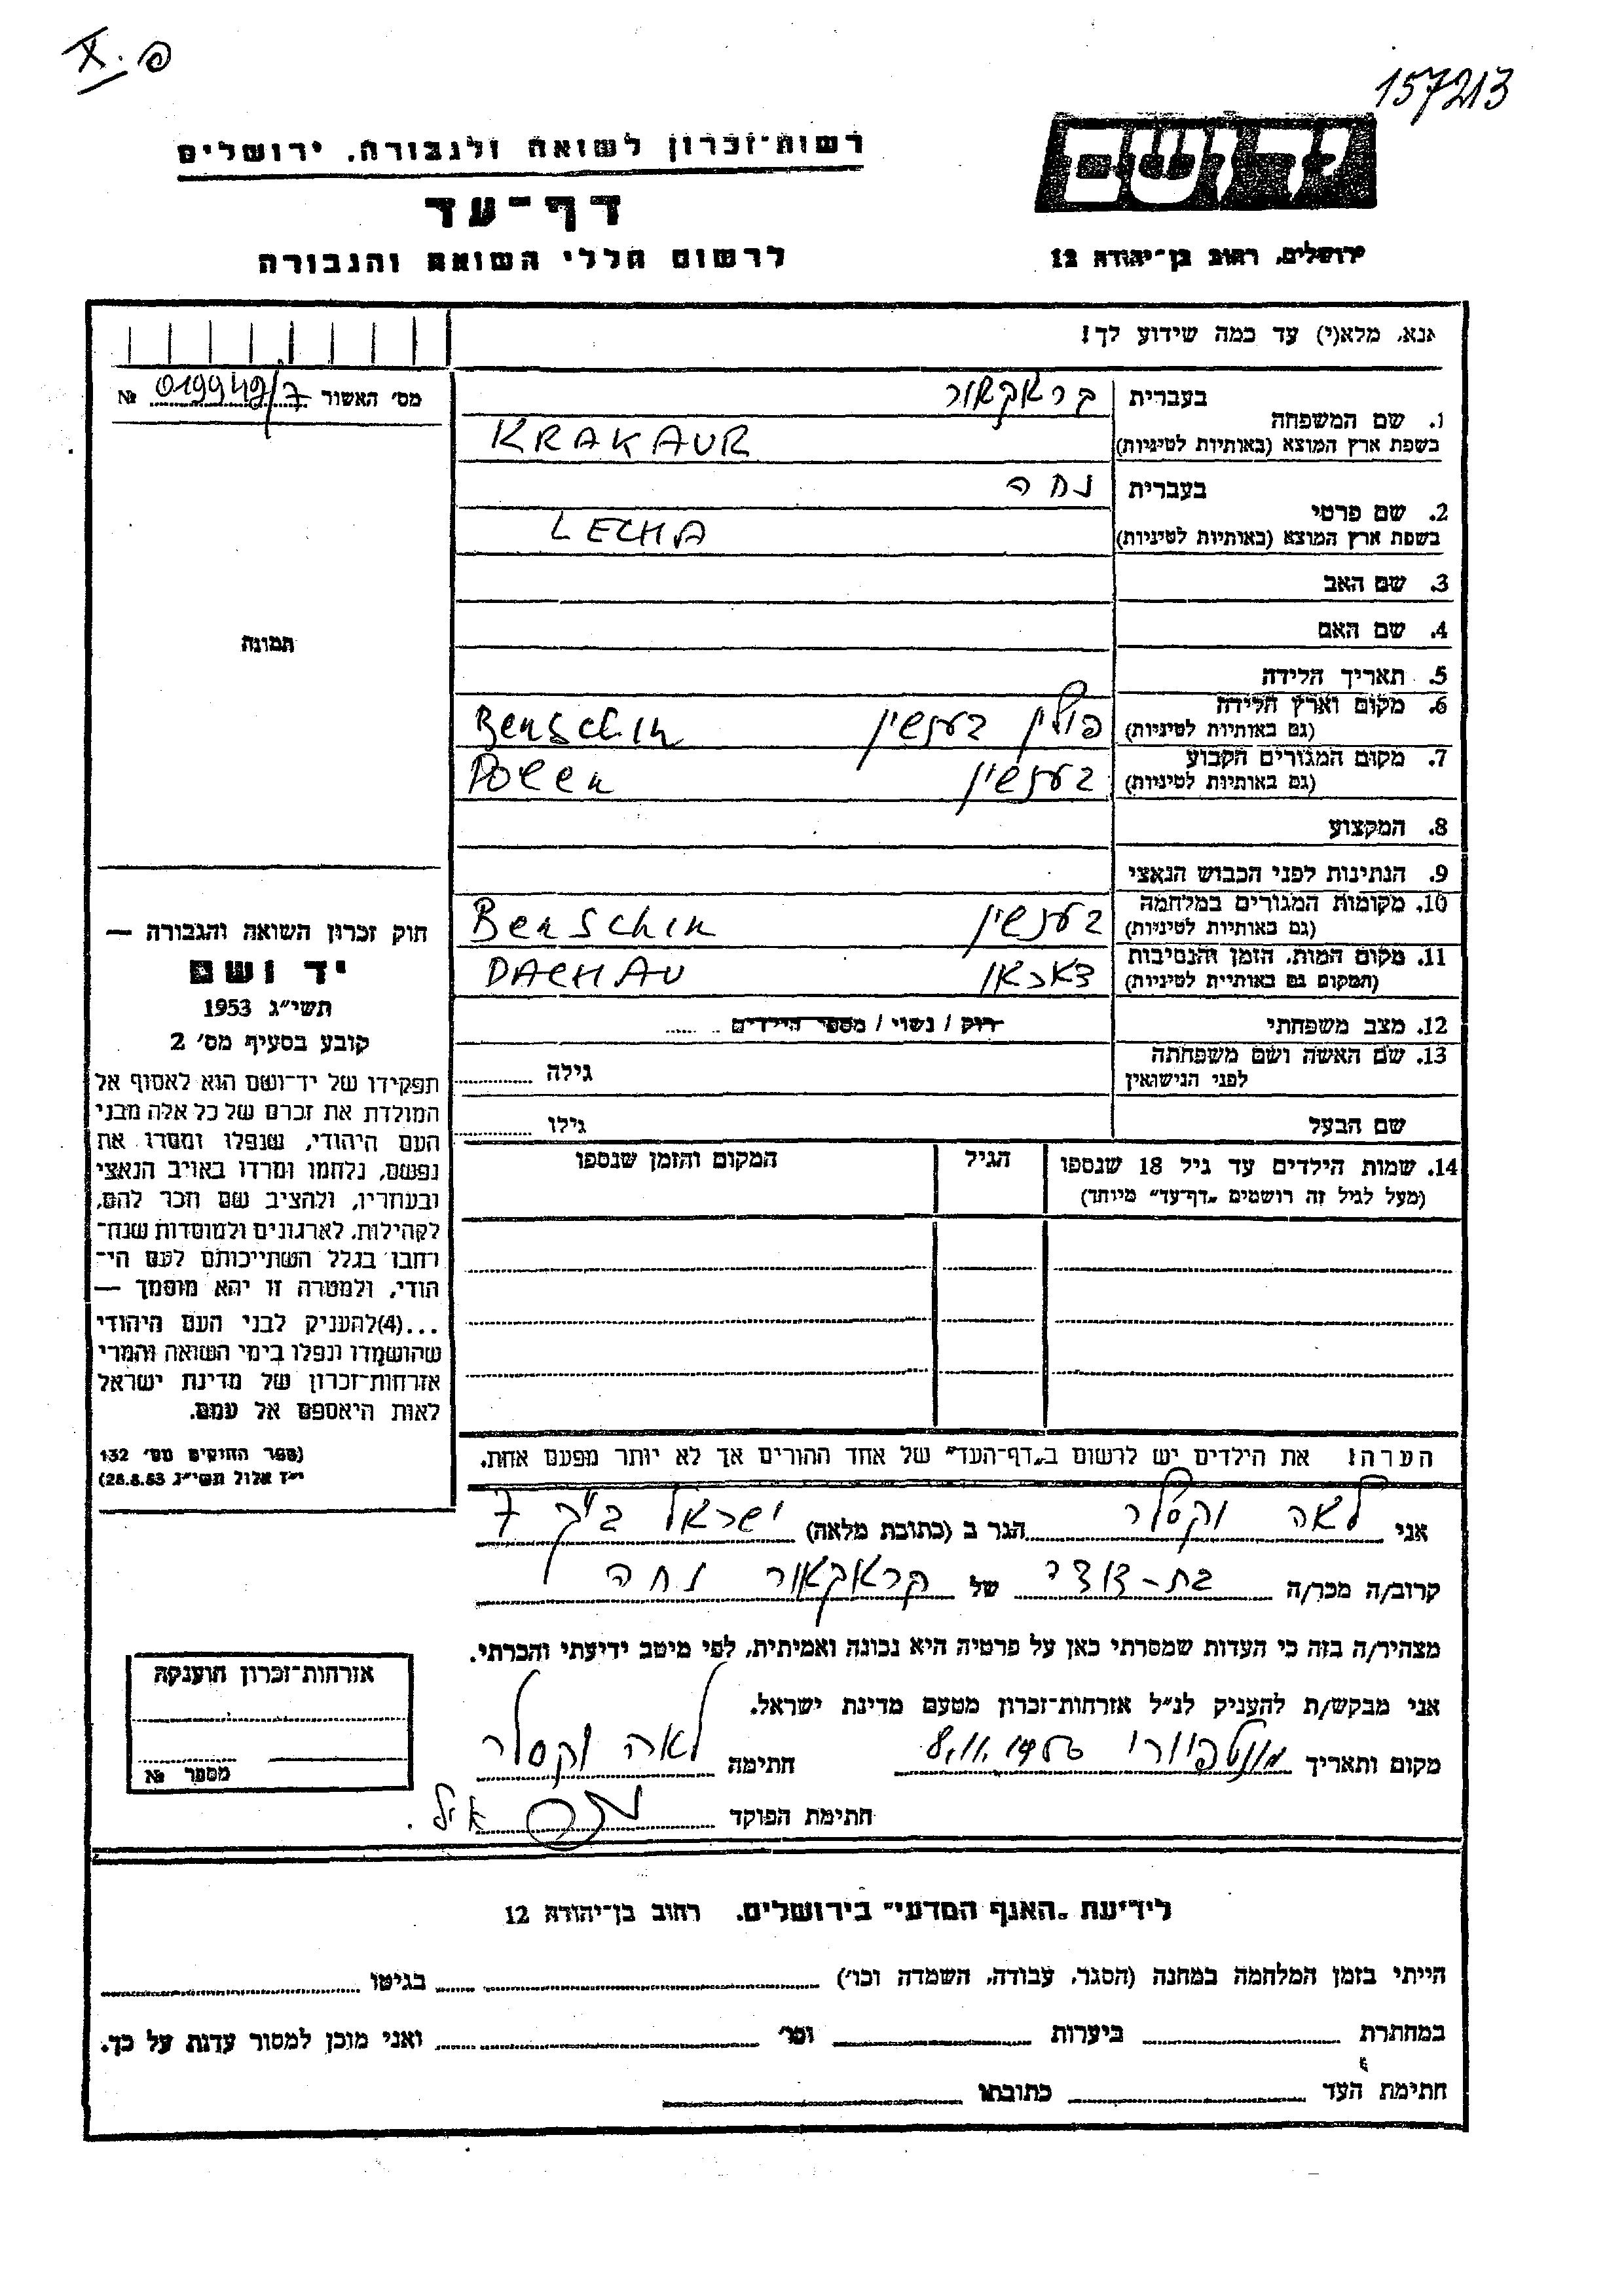 X. פ
157213
רשות־זכרון לשואה ולגבורה, ירושלים
יד ושם
דף־עד
לרשום חללי השואה והגבורה
ירושלים, רחוב בן־יהודה 12
אנא, מלא(י) עד כמה שידוע לך!
מס' האשור 019949/7 №
1. שם המשפחה
בעברית קראקאור
בשפת ארץ המוצא (באותיות לטיניות) KRAKAUR
2. שם פרטי
בעברית נחה
בשפת ארץ המוצא (באותיות לטיניות) LECHA
3. שם האב
4. שם האם
תמונה
5. תאריך הלידה
6. מקום וארץ הלידה פולין בענשין Benschin
(גם באותיות לטיניות)
7. מקום המגורים הקבוע בענשין Polen
(גם באותיות לטיניות)
8. המקצוע
9. הנתינות לפני הכבוש הנאצי
10. מקומות המגורים במלחמה בענשין Benschin
(גם באותיות לטיניות)
11. מקום המות, הזמן והנסיבות דאכאו DACHAU
(המקום גם באותיות לטיניות)
12. מצב משפחתי רוק / נשוי / מספר הילדים
13. שם האשה ושם משפחתה
לפני הנישואין גילה
שם הבעל גילו
14. שמות הילדים עד גיל 18 שנספו הגיל המקום והזמן שנספו
(מעל לגיל זה רושמים „דף־עד" מיוחד)
חוק זכרון השואה והגבורה —
יד ושם
תשי"ג 1953
קובע בסעיף מס' 2
תפקידו של יד־ושם הוא לאסוף אל
המולדת את זכרם של כל אלה מבני
העם היהודי, שנפלו ומסרו את
נפשם, נלחמו ומרדו באויב הנאצי
ובעוזריו, ולהציב שם וזכר להם,
לקהילות, לארגונים ולמוסדות שנח־
רבו בגלל השתייכותם לעם הי־
הודי, ולמטרה זו יהא מוסמך —
...(4)להעניק לבני העם היהודי
שהושמדו ונפלו בימי השואה והמרי
אזרחות־זכרון של מדינת ישראל
לאות היאספם אל עמם.
(ספר החוקים מס' 132
י"ז אלול תשי"ג 28.8.53)
הערה: את הילדים יש לרשום ב„דף־העד" של אחד ההורים אך לא יותר מפעם אחת.
אני לאה וקסלר הגר ב (כתובת מלאה) ישראל ב"ק 7
קרוב/ה מכר/ה בת-דודי של קראקאור נחה
מצהיר/ה בזה כי העדות שמסרתי כאן על פרטיה היא נכונה ואמיתית, לפי מיטב ידיעתי והכרתי.
אני מבקש/ת להעניק לנ"ל אזרחות־זכרון מטעם מדינת ישראל.
מקום ותאריך מונטפיורי 8.11.1956 חתימה לאה וקסלר
חתימת הפוקד
אזרחות־זכרון הוענקה
מספר №
לידיעת „האגף המדעי" בירושלים, רחוב בן־יהודה 12
הייתי בזמן המלחמה במחנה (הסגר, עבודה, השמדה וכו') בגיטו
במחתרת ביערות וכו' ואני מוכן למסור עדות על כך.
חתימת העד כתובתו